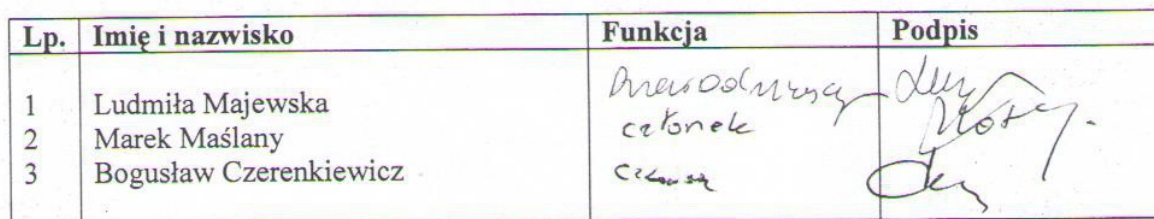 Lp. Imię i nazwisko Funkcja Podpis
1 Ludmiła Majewska Przewodniczący
2 Marek Maślany członek
3 Bogusław Czerenkiewicz członek